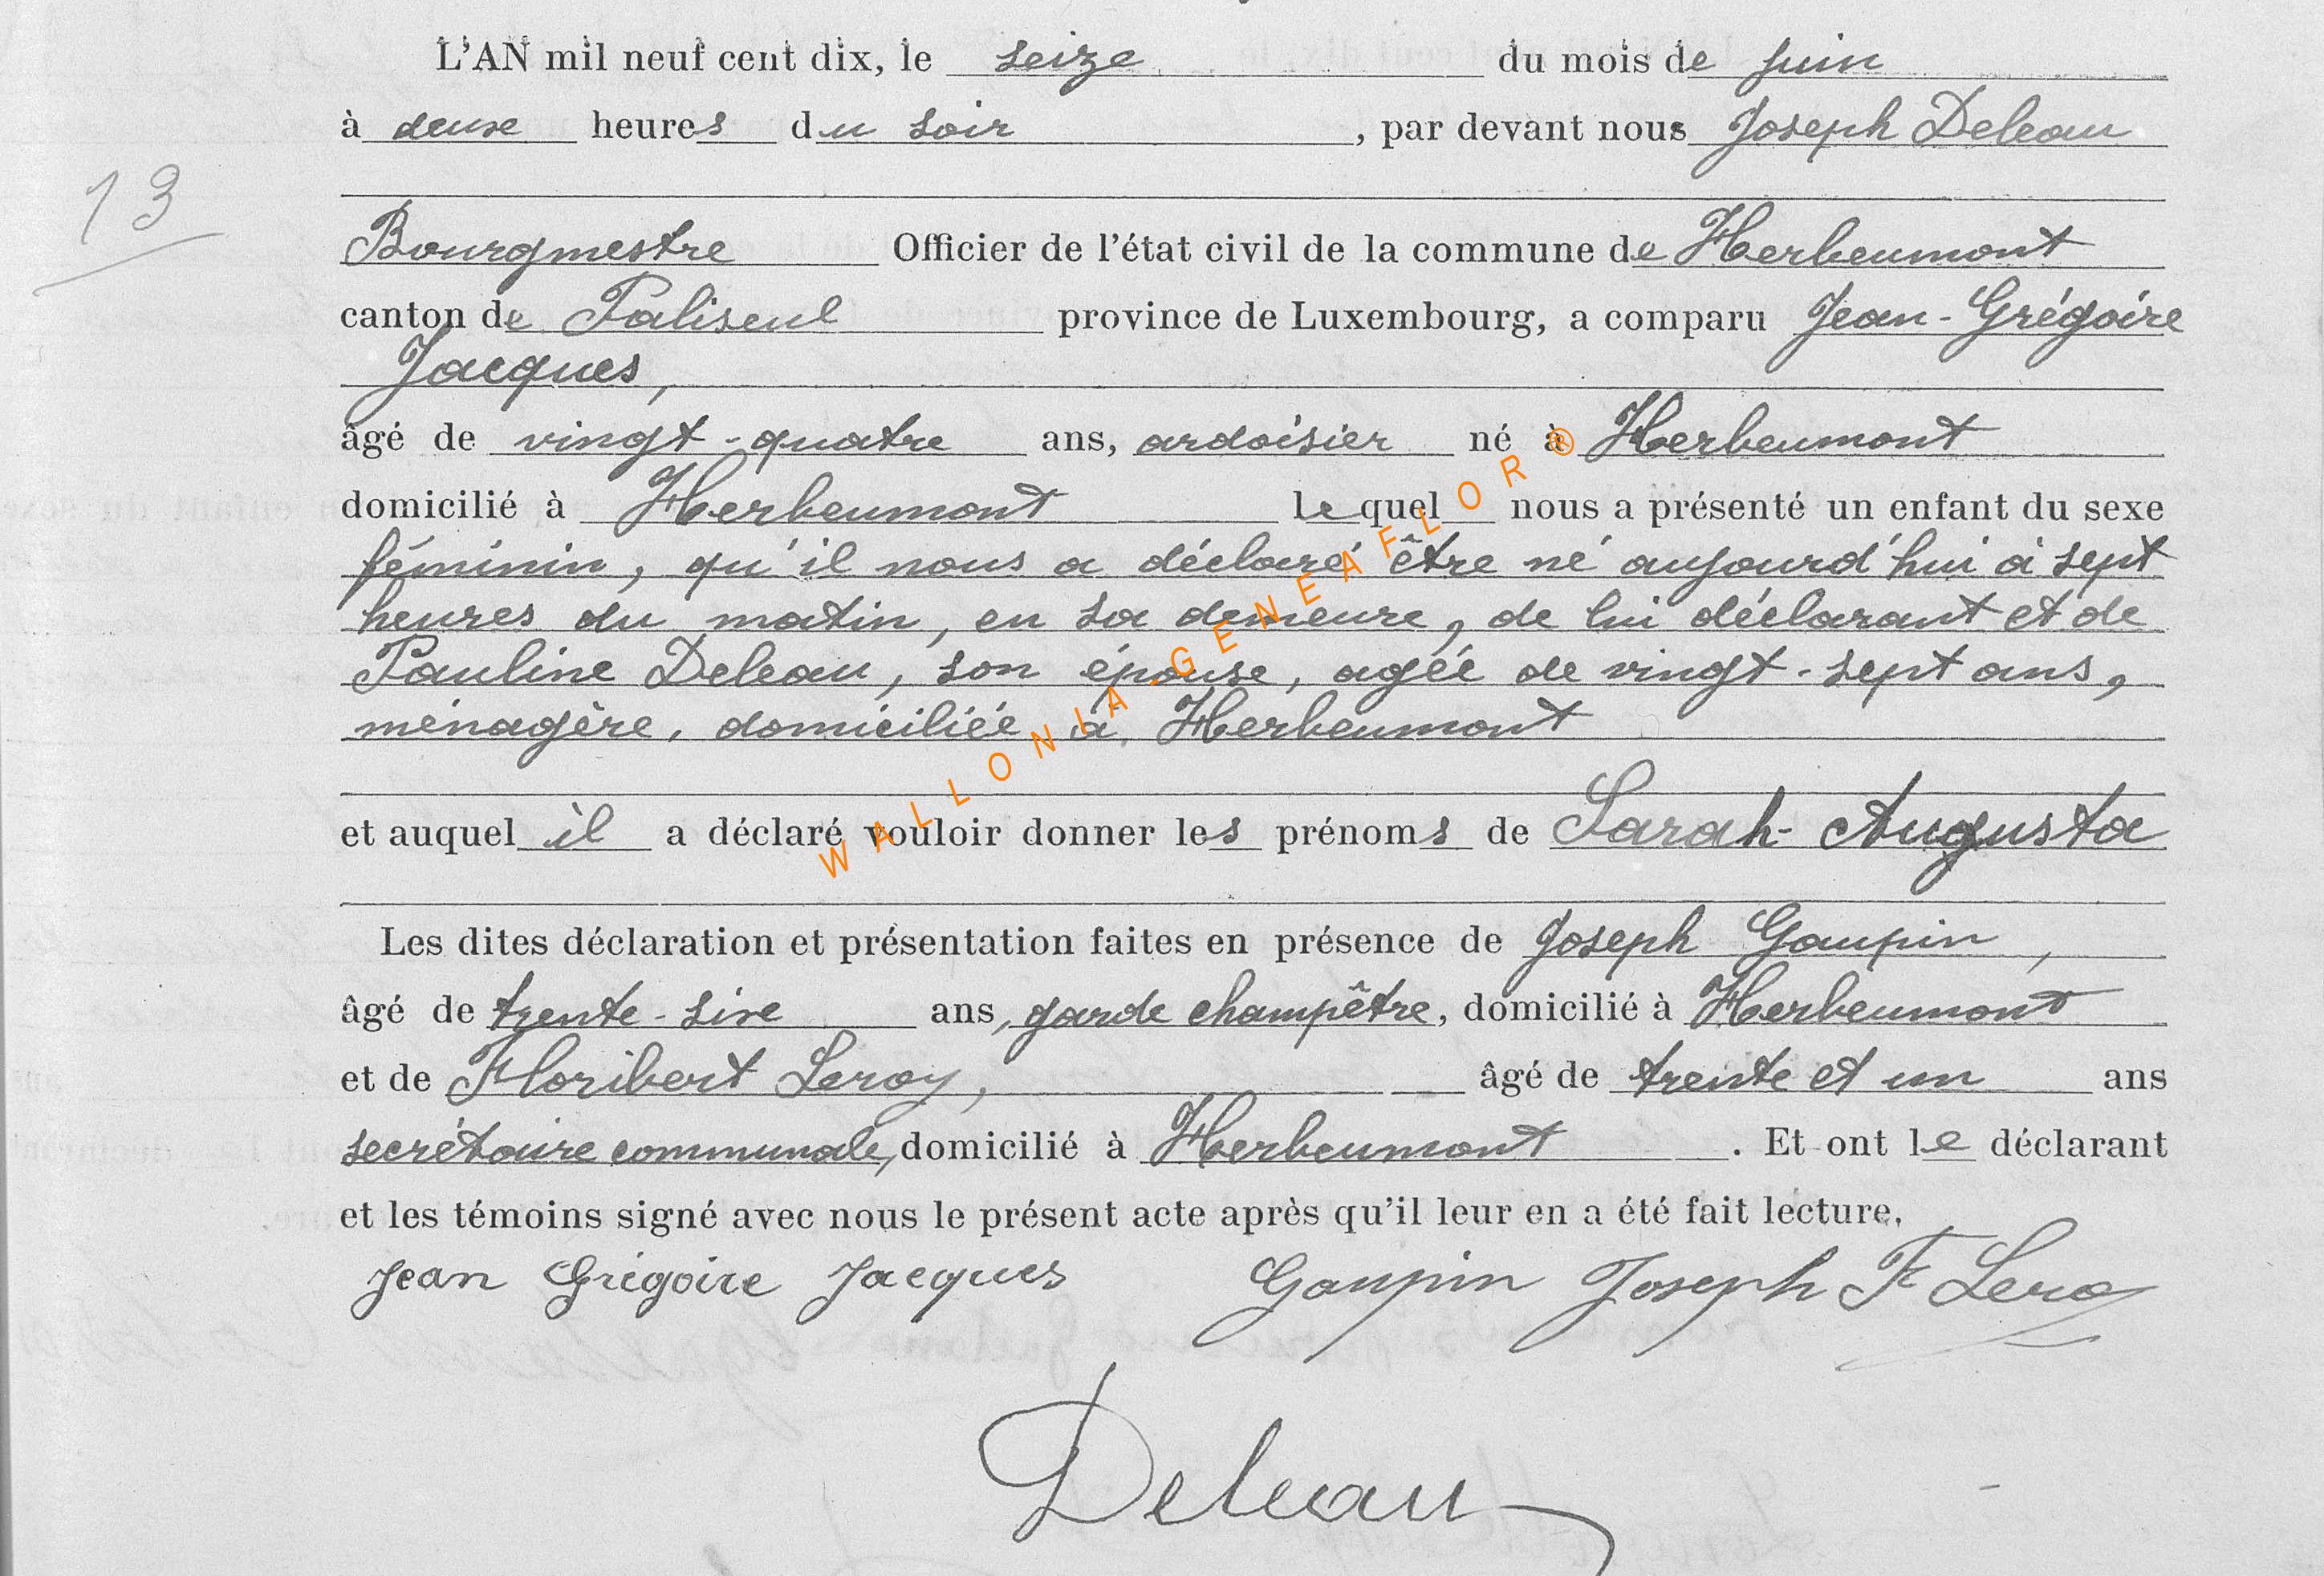 L'AN mil neuf cent dix, le seize du mois de juin
à deux heures du soir, par devant nous Joseph Deleau
13
Bourgmestre Officier de l'état civil de la commune de Herbeumont
canton de Paliseul province de Luxembourg, a comparu Jean-Grégoire
Jacques,
âgé de vingt-quatre ans, ardoisier né à Herbeumont
domicilié à Herbeumont lequel nous a présenté un enfant du sexe
féminin, qu'il nous a déclaré être né aujourd'hui à sept
heures du matin, en sa demeure, de lui déclarant et de
Pauline Deleau, son épouse, agée de vingt-sept ans,
ménagère, domiciliée à Herbeumont
et auquel il a déclaré vouloir donner les prénoms de Sarah-Augusta
Les dites déclaration et présentation faites en présence de Joseph Gaupin,
âgé de trente-six ans, garde champêtre, domicilié à Herbeumont
et de Floribert Leroy, âgé de trente et un ans
secrétaire communale, domicilié à Herbeumont. Et ont le déclarant
et les témoins signé avec nous le présent acte après qu'il leur en a été fait lecture.
Jean Grégoire Jacques Gaupin Joseph F Leroy
Deleau
WALLONIA-GENEAFLOR®